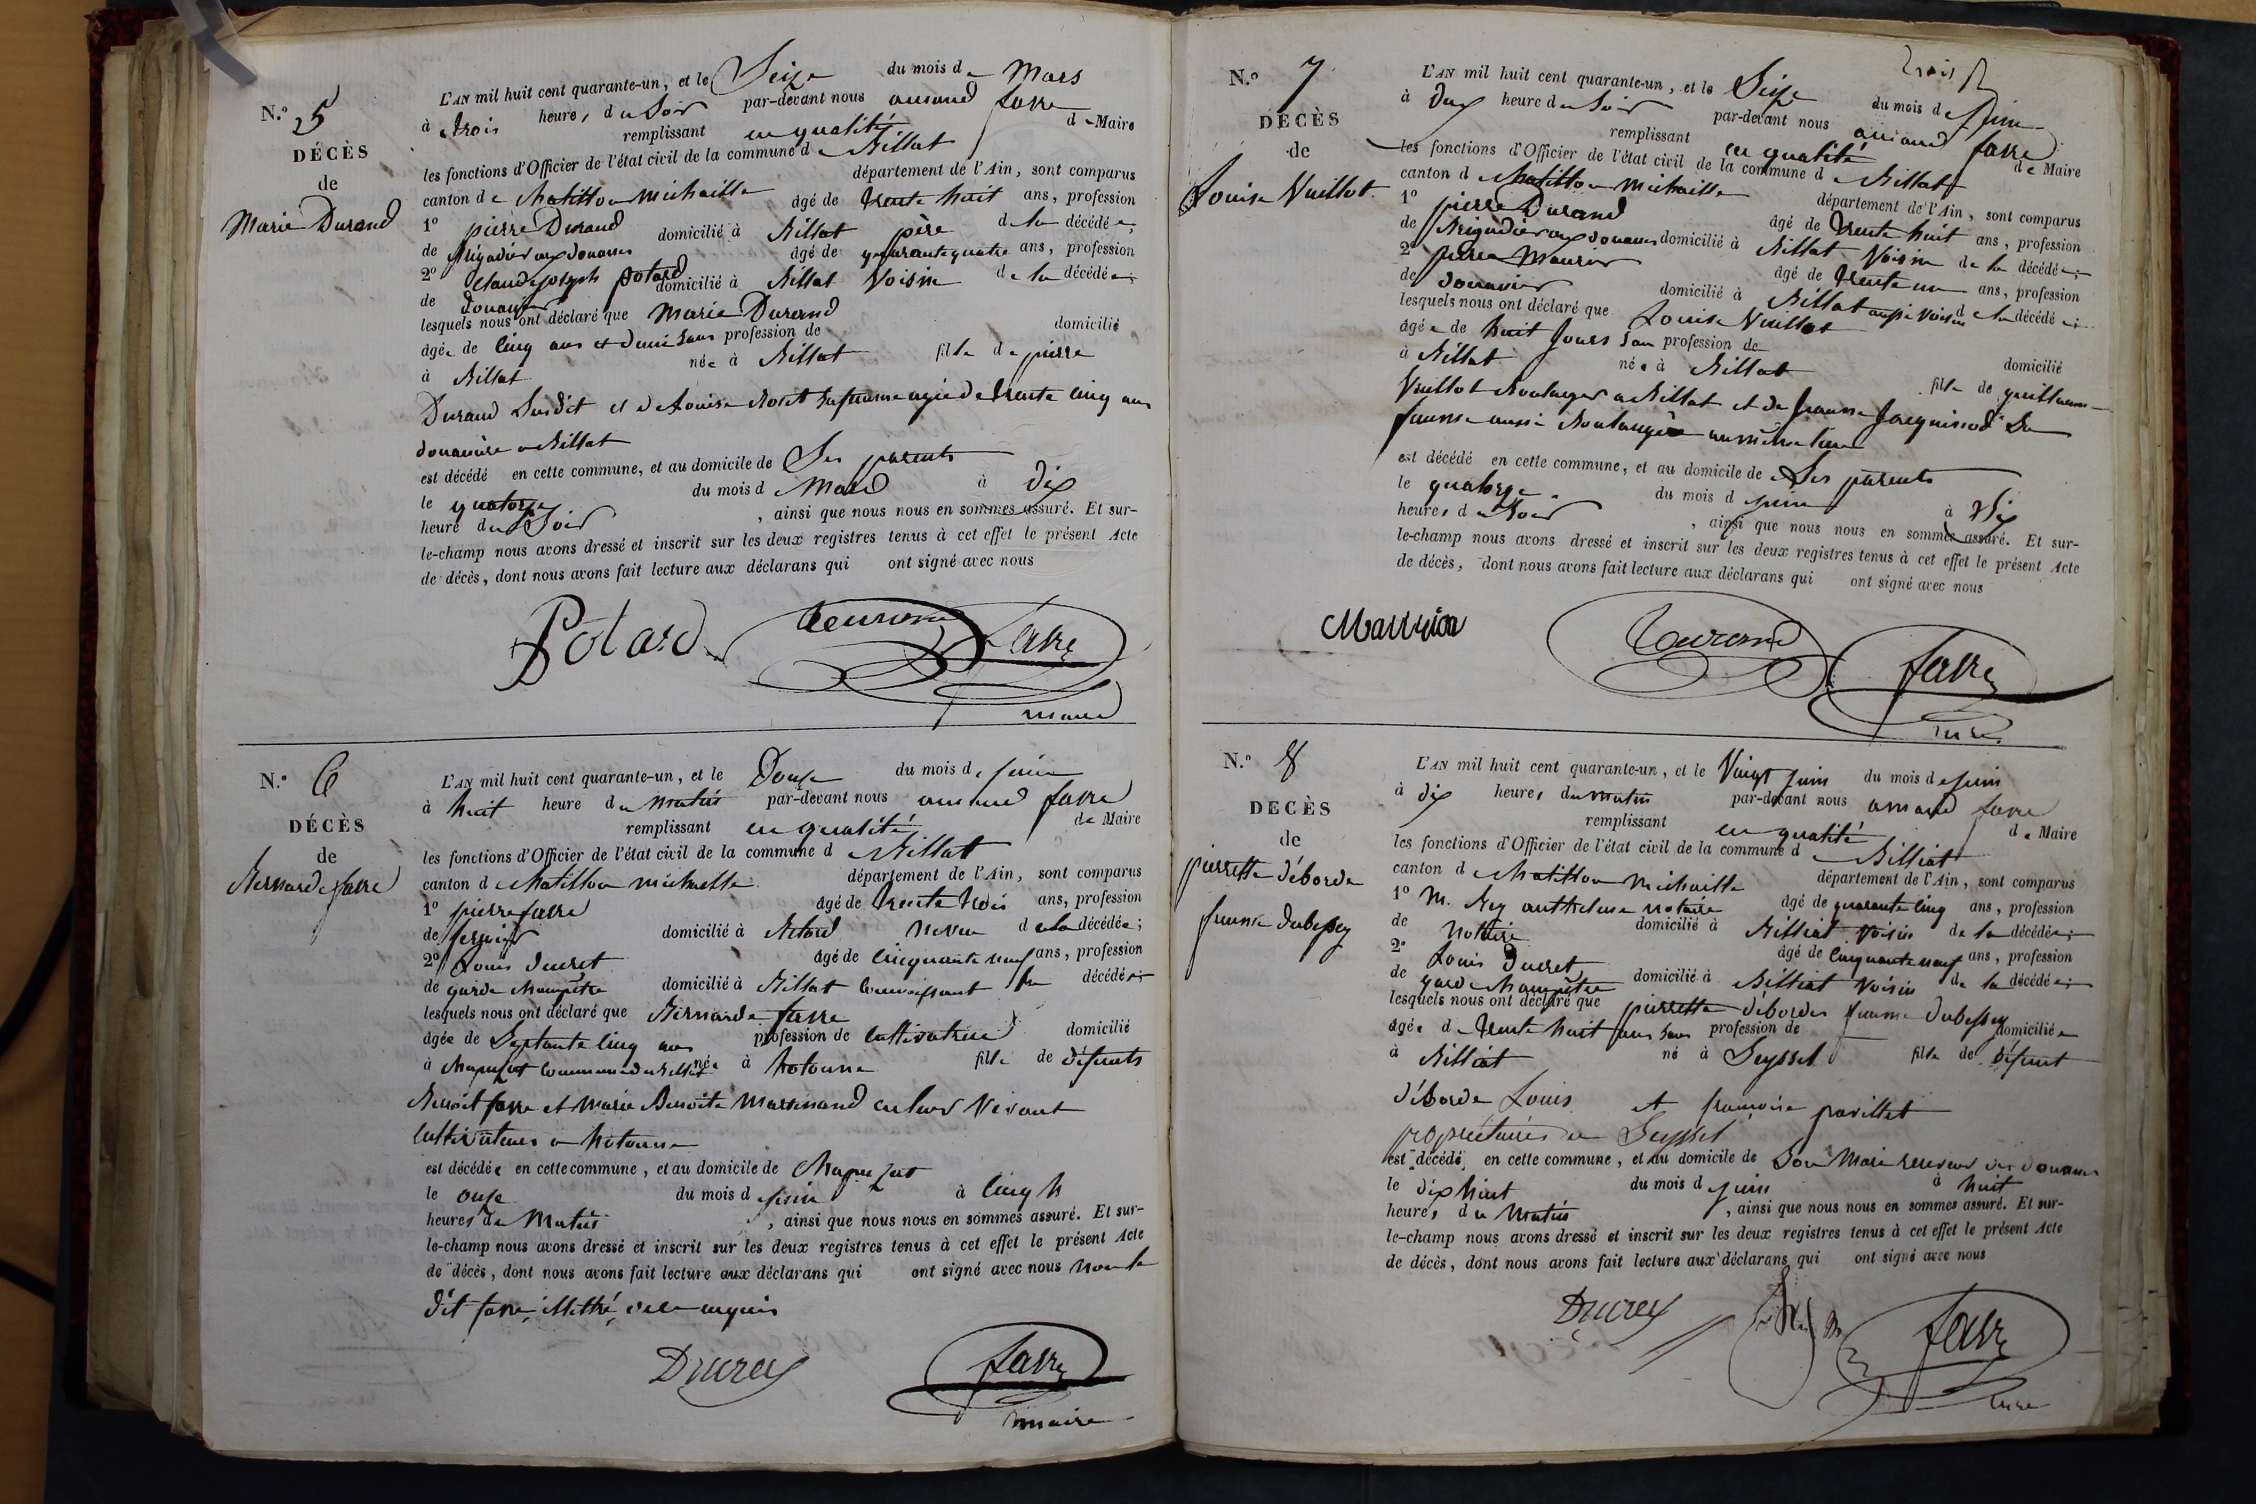 N.º 5
DÉCÈS
de
Marie Durand
L'AN mil huit cent quarante-un, et le Seize du mois de Mars
à trois heures du Soir par-devant nous amand favre
remplissant en qualité de Maire
les fonctions d'Officier de l'état civil de la commune de Billat
canton de Chatillon Michaille département de l'Ain, sont comparus
1º pierre Durand âgé de trente huit ans, profession
de Brigadier aux douanes domicilié à Billat père de la décédée;
2º Claude joseph potard âgé de quarante quatre ans, profession
de douanier domicilié à Billat Voisin de la décédée;
lesquels nous ont déclaré que Marie Durand
âgée de Cinq ans et demi Sans profession de domicilié
à Billat née à Billat fille de pierre
Durand Susdit et de Louise sa femme agée de trente cinq ans
douanière a Billat
est décédé en cette commune, et au domicile de Ses parents
le quatorze du mois de Mars à dix
heure du Soir, ainsi que nous nous en sommes assuré. Et sur-
le-champ nous avons dressé et inscrit sur les deux registres tenus à cet effet le présent Acte
de décès, dont nous avons fait lecture aux déclarans qui ont signé avec nous
Potard Durand Favre
maire
N.º 6
DÉCÈS
de
Bernarde favre
L'AN mil huit cent quarante-un, et le Douze du mois de juin
à huit heure du matin par-devant nous amand favre
remplissant en qualité de Maire
les fonctions d'Officier de l'état civil de la commune de Billat
canton de Chatillon michaille département de l'Ain, sont comparus
1º pierre favre âgé de trente trois ans, profession
de fermier domicilié à neveu de la décédée;
2º Louis Ducret âgé de Cinquante neuf ans, profession
de garde Champêtre domicilié à Billat Connaissant la décédée
lesquels nous ont déclaré que Bernarde favre
âgée de Septante Cinq ans profession de Cultivatrice domicilié
à commune de Billat née à hotonne fille de défunts
Benoit favre et Marie Benoite Martinand en leur Vivant
Cultivateurs a hotonne
est décédée en cette commune, et au domicile de
le onze du mois de juin à Cinq h
heures du Matin, ainsi que nous nous en sommes assuré. Et sur-
le-champ nous avons dressé et inscrit sur les deux registres tenus à cet effet le présent Acte
de décès, dont nous avons fait lecture aux déclarans qui ont signé avec nous non le
dit favre, illettré, de ce requis
Ducret favre
maire
N.º 7
DÉCÈS
de
Louise Vuillot
L'AN mil huit cent quarante-un, et le Seize du mois de juin
à Dix heure du Soir par-devant nous amand favre
remplissant en qualité de Maire
les fonctions d'Officier de l'état civil de la commune de Billat
canton de Chatillon Michaille département de l'Ain, sont comparus
1º pierre Durand âgé de trente huit ans, profession
de Brigadier aux douanes domicilié à Billat Voisin de la décédée;
2º pierre Maurier âgé de trente un ans, profession
de douanier domicilié à Billat aussi voisin de la décédée;
lesquels nous ont déclaré que Louise Vuillot
âgée de huit jours Sans profession de domicilié
à Billat née à Billat fille de guillaume
Vuillot Boulanger a Billat et de jeanne Jacquinod Sa
femme aussi Boulangère au même lieu
est décédé en cette commune, et au domicile de Ses parents
le quatorze du mois de juin à Dix
heures du Soir, ainsi que nous nous en sommes assuré. Et sur-
le-champ nous avons dressé et inscrit sur les deux registres tenus à cet effet le présent Acte
de décès, dont nous avons fait lecture aux déclarans qui ont signé avec nous
Durand favre
N.º 8
DÉCÈS
de
pierrette déborde
femme dubessey
L'AN mil huit cent quarante-un, et le Vingt juin du mois de juin
à dix heures du matin par-devant nous amand favre
remplissant en qualité de Maire
les fonctions d'Officier de l'état civil de la commune de Billiat
canton de Chatillon Michaille département de l'Ain, sont comparus
1º M. Rey anthelme notaire âgé de quarante cinq ans, profession
de Notaire domicilié à Billiat Voisin de la décédée;
2º Louis Ducret âgé de Cinquante neuf ans, profession
de garde Champêtre domicilié à Billiat Voisin de la décédée;
lesquels nous ont déclaré que pierrette débordes femme Dubessey
âgée de trente huit ans Sans profession de domiciliée
à Billiat né à Seyssel fille de défunt
déborde Louis et françoise pavillet
propriétaires a Seyssel
est décédé en cette commune, et au domicile de Son Mari receveur des douanes
le dix huit du mois de juin à huit
heures du Matin, ainsi que nous nous en sommes assuré. Et sur-
le-champ nous avons dressé et inscrit sur les deux registres tenus à cet effet le présent Acte
de décès, dont nous avons fait lecture aux déclarans qui ont signé avec nous
Ducret favre